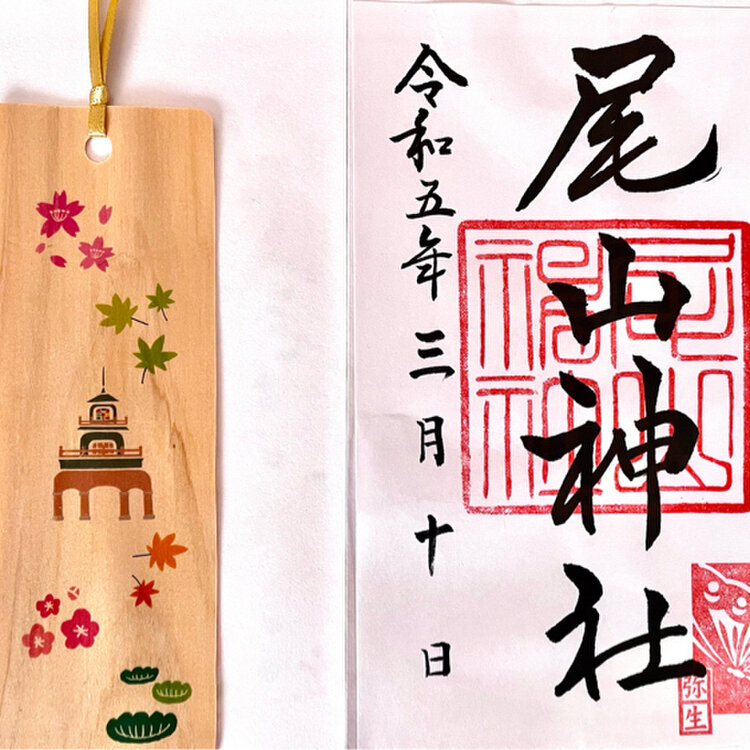 尾山神社
令和五年三月十日
弥生